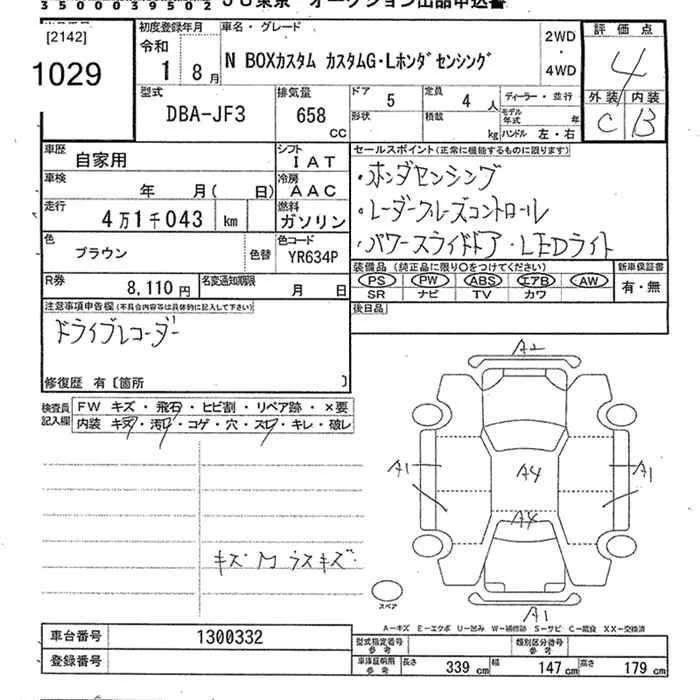 35000039502 JU東京 オークション出品申込書
[2142]
1029
初度登録年月
令和
1 8月
車名・グレード
N BOXカスタム カスタムG・Lホンダセンシング
2WD
・
4WD
評価点
4
外装 内装
C B
型式
DBA-JF3
排気量
658
CC
ドア 5
定員 4 人
形状
積載 kg
ディーラー・並行
モデル年式 年
ハンドル 左・右
車歴
自家用
シフト
IAT
車検 年 月( 日)
冷房
AAC
走行
4万1千043 km
燃料
ガソリン
色
ブラウン
色替
色コード
YR634P
R券
8,110円
名変通知期限
月 日
セールスポイント(正常に機能するものに限ります)
・ホンダセンシング
・レーダークルーズコントロール
・パワースライドドア・LEDライト
装備品(純正品に限り○をつけてください)
PS PW ABS エアB AW
SR ナビ TV カワ
新車保証書
有・無
後日品
注意事項申告欄(不具合内容等は具体的に記入して下さい)
ドライブレコーダー
修復歴 有〔箇所 〕
検査員
記入欄
FW キズ・飛石・ヒビ割・リペア跡・×要
内装 キズ・汚れ・コゲ・穴・スレ・キレ・破レ
キズ・M ラスキズ・
A2
A1
A4
A1
A4
A1
スペア
A－キズ E－エクボ U－凹み W－補修跡 S－サビ C－腐食 XX－交換済
車台番号 1300332
登録番号
型式指定番号
参考
類別区分番号
参考
車庫証明用
参考
長さ 339cm
幅 147cm
高さ 179cm